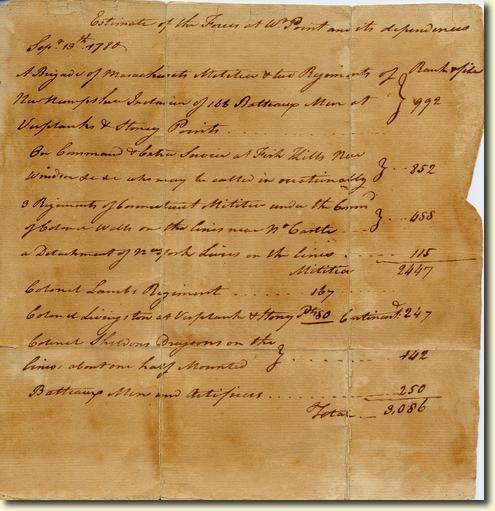 Estimate of the Forces at Wt Point and its dependences
Sepr. 13th. 1780
A Brigade of Massachusets Militia & two Regiments of Rank & file
New Hampshire Inclusive of 166 Batteaux Men at } 992
Verplanks & Stoney Points
On Command & Extra Service at Fish Kills New
Windsor &c &c who may be called in occationally } 852
3 Regiments of Connecticut Militia under the Comd
of Colonel Wells on the lines near N. Castle } 488
a Detachment of New York Levies on the lines 115
Militia 2447
Colonel Lambs Regiment 167
Colonel Livingston at Verplank & Stoney Pts 80 Continent: 247
Colonel Sheldons Dragoons on the
lines about one half Mounted } 142
Batteaux Men and Artificers 250
Total 3,086